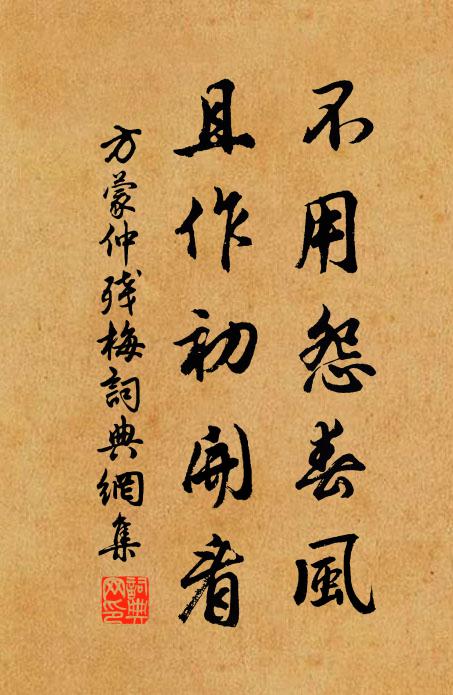 不用怨春風
且作初開看
方蒙仲殘梅詞典網集
詞典网印